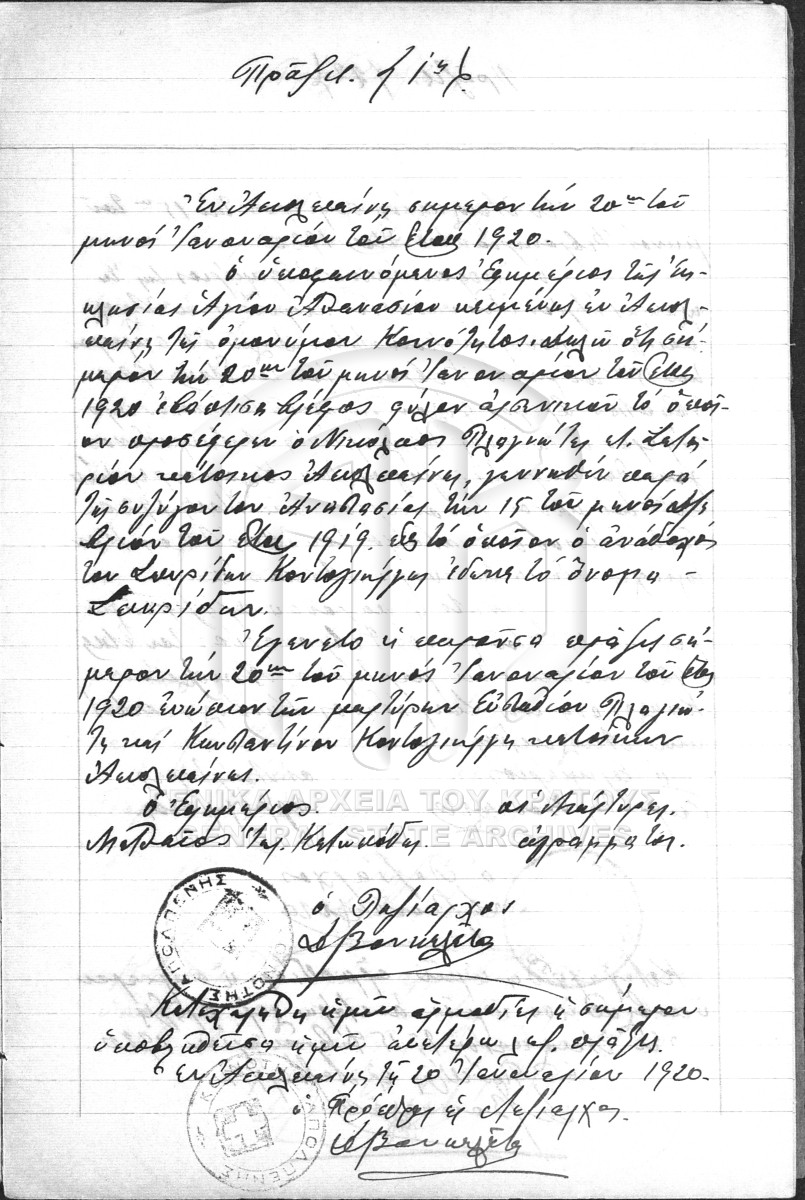 Πράξις 1η
Ἐν Ἀπολπαίνῃ σήμερον τὴν 20ην τοῦ
μηνὸς Ἰανουαρίου τοῦ ἔτους 1920.
ὁ ὑποφαινόμενος Ἐφημέριος τῆς Ἐκ-
κλησίας Ἁγίου Ἀθανασίου κειμένης ἐν Ἀπολ-
παίνῃ τῆς ὁμονύμου Κοινότητος, δηλῶ ὅτι σή-
μερον τὴν 20ην τοῦ μηνὸς Ἰανουαρίου τοῦ ἔτους
1920 ἐβάπτισα βρέφος φύλου ἀρσενικοῦ τὸ ὁποῖ-
ον προσέφερεν ὁ Νικόλαος Πλαγιώτης
κάτοικος Ἀπολπαίνης, γεννηθὲν παρὰ
τῆς συζύγου του Ἀναστασίας τὴν 15 τοῦ μηνὸς
βρίου τοῦ ἔτους 1919. εἰς τὸ ὁποῖον ὁ ἀνάδοχός
του Σπυρίδων Κοντογιώργης ἔδωκε τὸ ὄνομα -
Σπυρίδων.
Ἐγένετο ἡ παροῦσα πρᾶξις σή-
μερον τὴν 20ην τοῦ μηνὸς Ἰανουαρίου τοῦ ἔτους
1920 ἐνώπιον τῶν μαρτύρων Εὐσταθίου Πλαγιώ-
τη καὶ Κωνσταντίνου Κοντογιώργη κατοίκων
Ἀπολπαίνης.
ὁ Ἐφημέριος οἱ Μάρτυρες
Ματθαῖος ἀγράμματοι.
ΚΟΙΝΟΤΗΣ ΑΠΟΛΠΕΝΗΣ
ὁ Ληξίαρχος
Κατεχωρήθη ἡμῖν ἁρμοδίως ἡ σήμερον
ὑποβληθεῖσα ἡμῖν ἀνωτέρω ληξ. πρᾶξις.
Ἐν Ἀπολπαίνῃ τῇ 20 Ἰανουαρίου 1920.
ὁ Πρόεδρος ἢ Ληξίαρχος
ΑΠΟΛΠΕΝΗΣ
ΓΕΝΙΚΑ ΑΡΧΕΙΑ ΤΟΥ ΚΡΑΤΟΥΣ
GENERAL STATE ARCHIVES